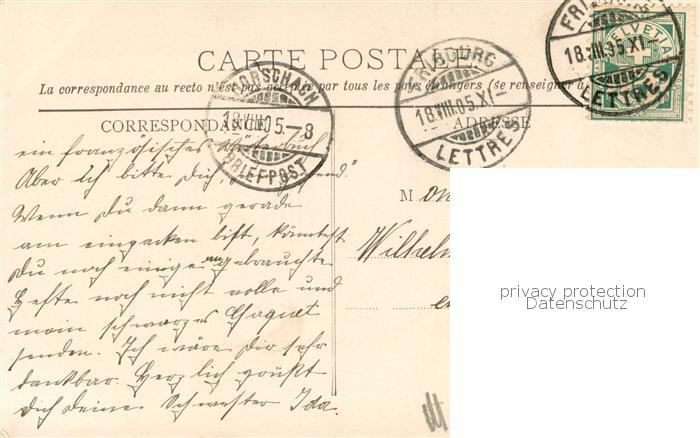 CARTE POSTALE
La correspondance au recto n'est pas acceptée par tous les pays étrangers (se renseigner à
CORRESPONDANCE
ADRESSE
RORSCHACH
18.VIII.05.-8
BRIEFPOST
FRIBOURG
18.VIII.05.XI
LETTRES
FRIBOURG
18.VIII.05.XI
LETTRES
HELVETIA
ein französisches Wörterbuch
Aber ich bitte Dich,
Wenn Du dann gerade
am einpacken bist, könntest
Du noch einige ungebrauchte
Hefte noch nicht volle und
mein schwarzes Jaquet
senden. Ich wäre Dir sehr
dankbar. Herzlich grüßt
Dich Deine Schwester Ida.
Mon
Wilhelm
privacy protection
Datenschutz